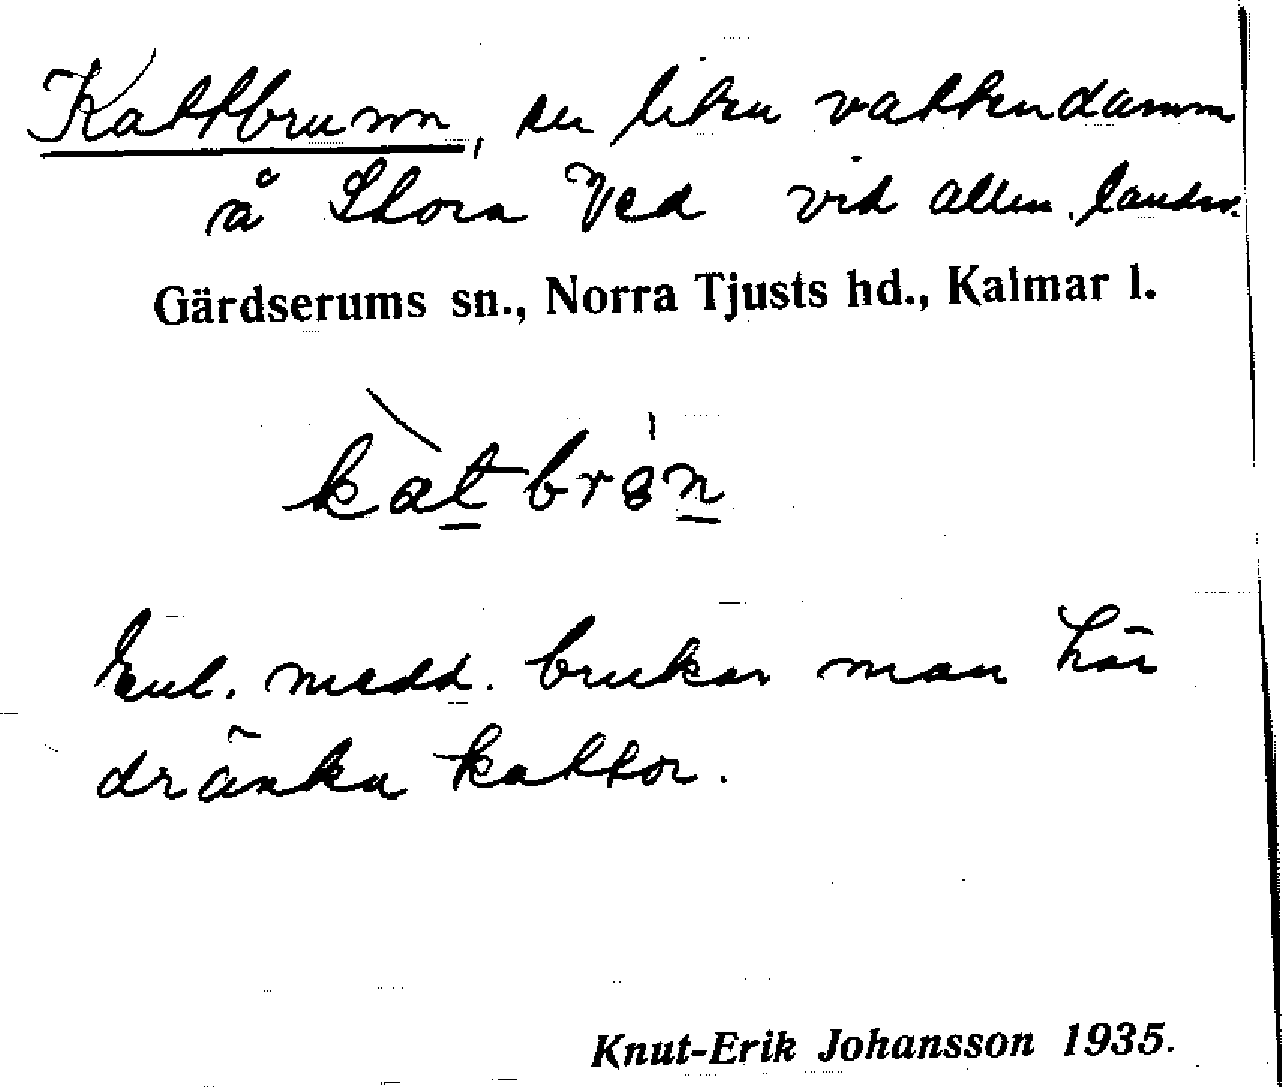 Kattbrunn, en liten vattendamm
å Stora Ved vid allm. landsv.
Gärdserums sn., Norra Tjusts hd., Kalmar l.
kàtbrɜn
Enl. medd. brukar man här
dränka kattor.
Knut-Erik Johansson 1935.